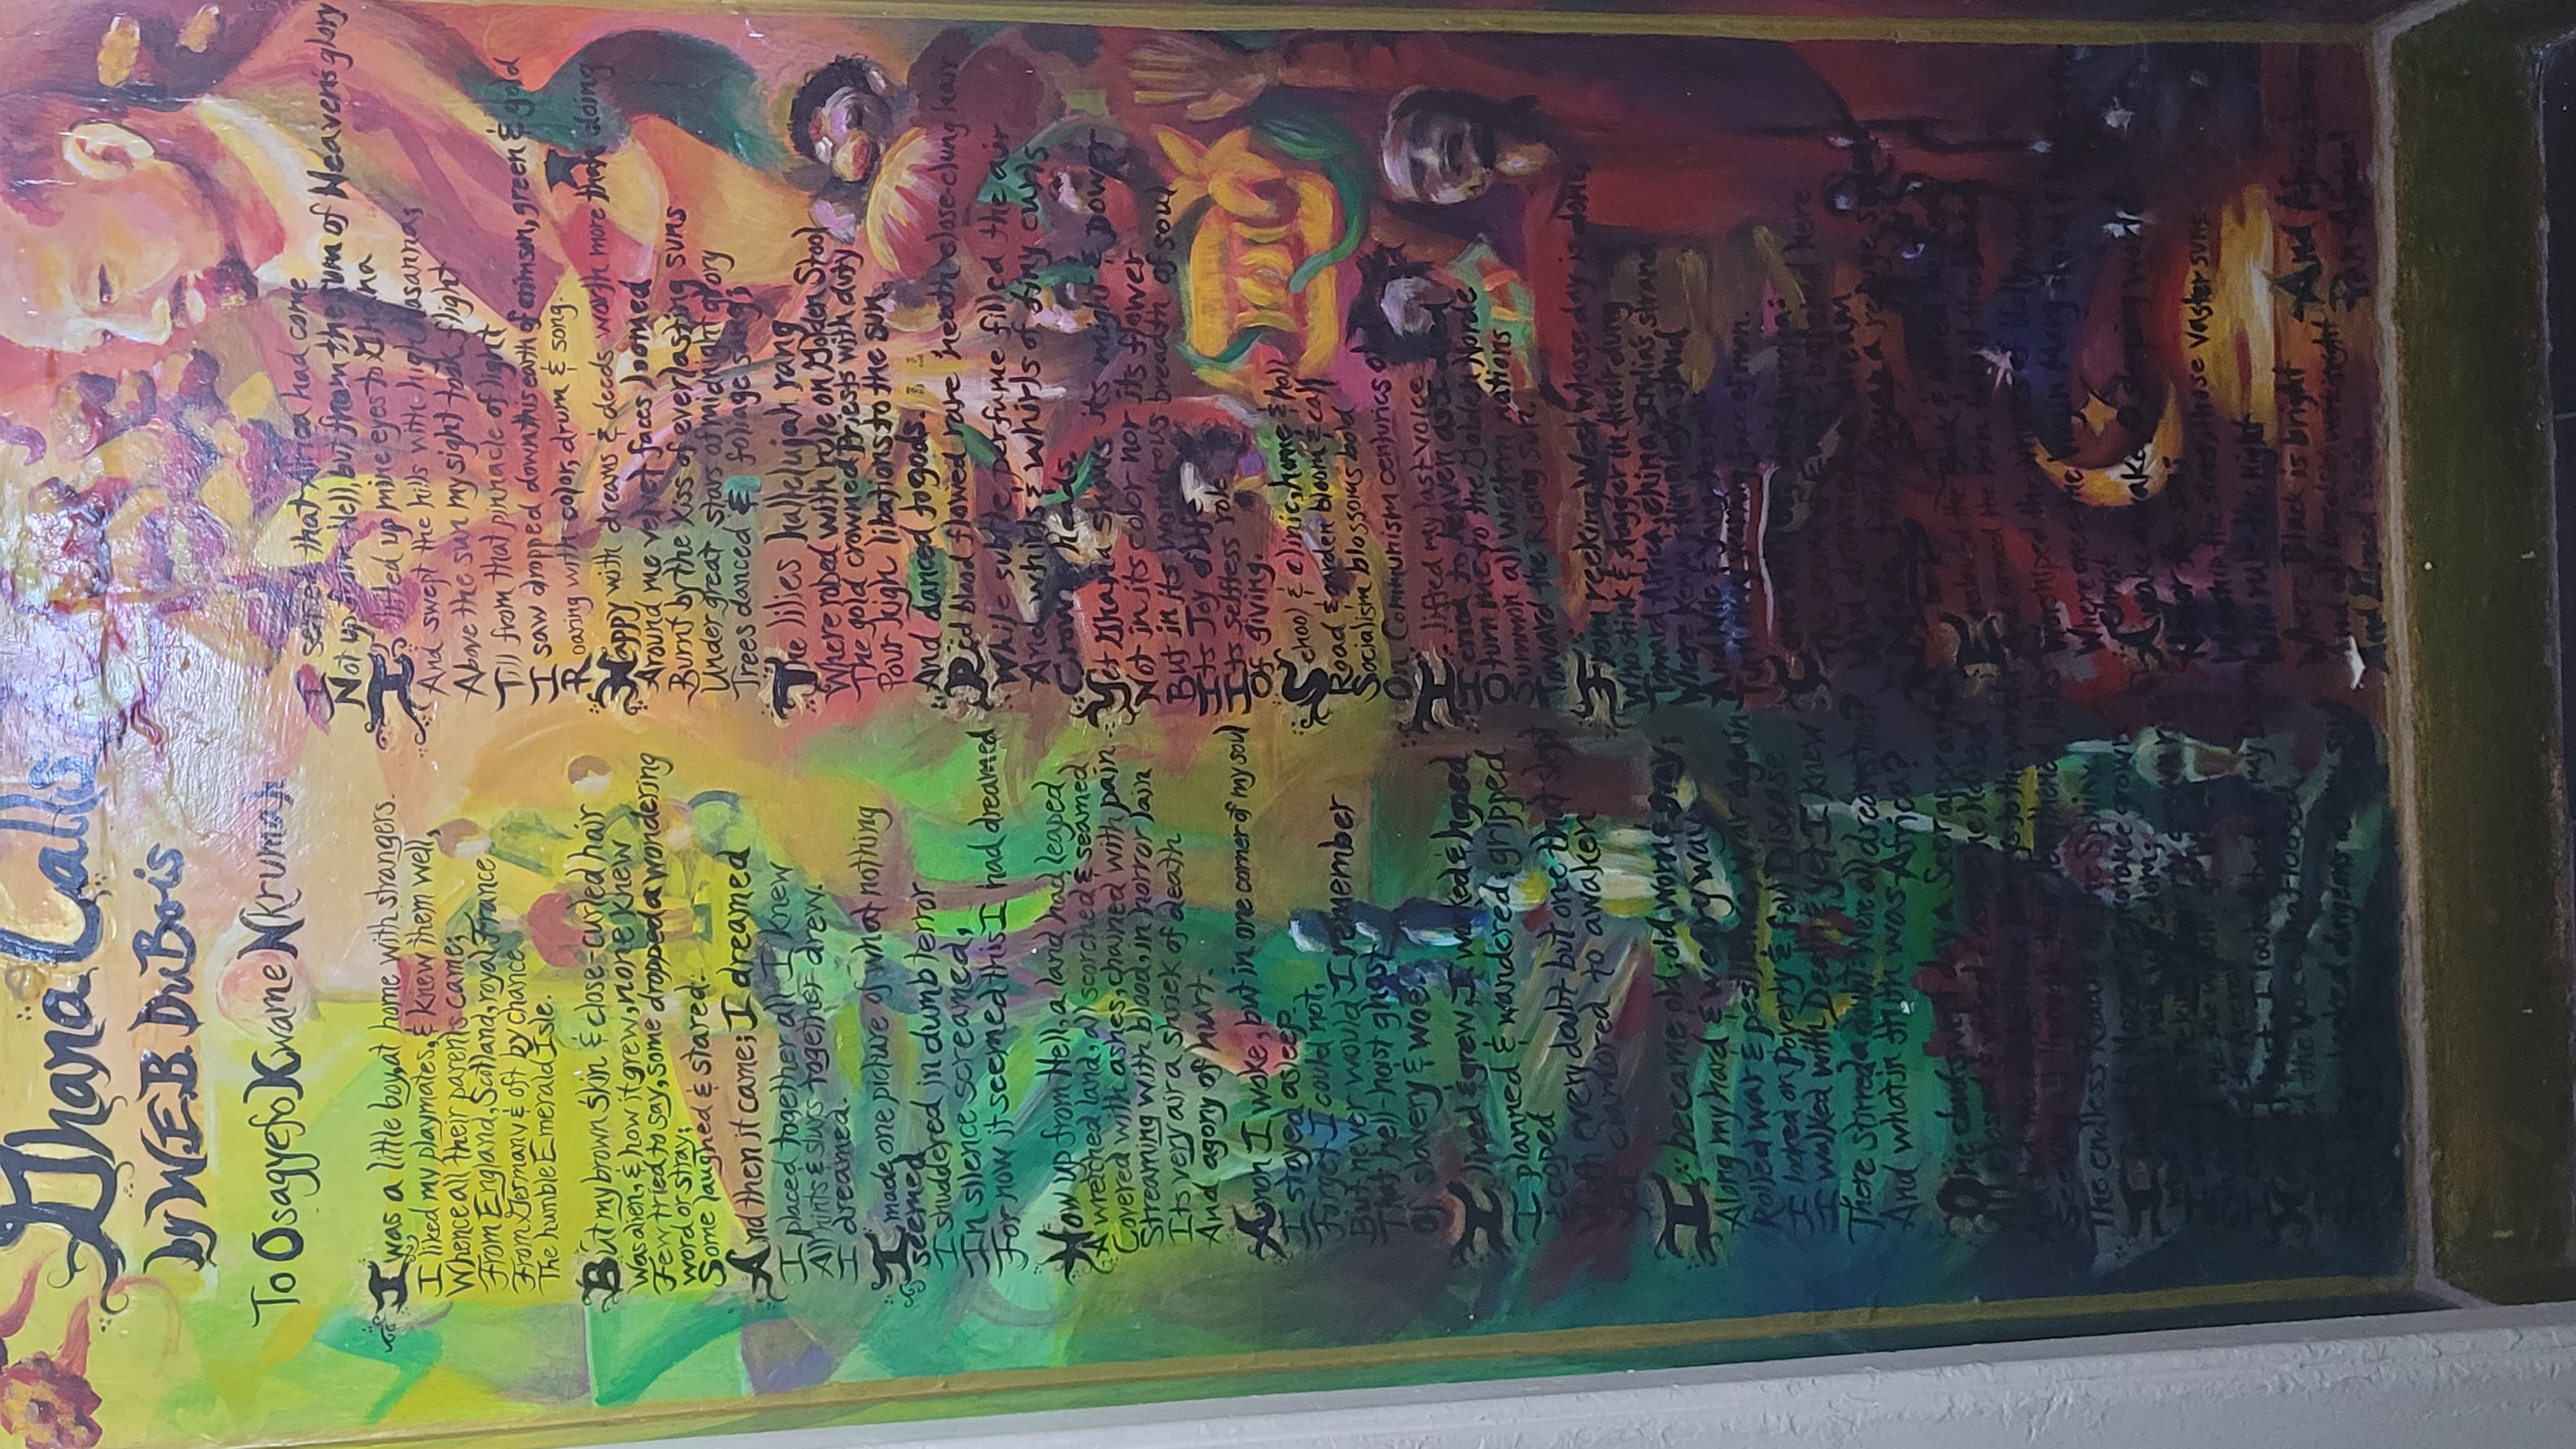 Ghana Calls
by W.E.B. DuBois
To Osagyefo Kwame Nkrumah
I was a little boy, at home with strangers.
I liked my playmates, & knew them well,
Whence all their parents came;
From England, Scotland, royal France
From Germany & oft by chance
The humble Emerald Isle.
But my brown skin & close-curled hair
was alien, & how it grew, none knew
Few tried to say, some dropped a wondering
word or stray;
Some laughed & stared.
And then it came; I dreamed
I placed together all I knew
All hints & slurs together drew.
I dreamed.
I made one picture of what nothing
seemed
I shuddered in dumb terror
In silence screamed,
For now it seemed this I had dreamed
How up from Hell, a land had leaped
A wretched land, all scorched & seamed
Covered with ashes, chained with pain
Streaming with blood, in horror lain
Its very air a shriek of death
And agony of hurt.
Anon I woke, but in one corner of my soul
I stayed asleep.
Forget I could not,
But never would I remember
That hell-hoist ghost
Of slavery & woe.
I lived & grew, I worked & hoped
I planned & wandered, gripped
& coped
With every doubt but one that slept
yet clamored to awaken
I became old; old, worn & gray;
Along my hard & weary way
Rolled war & pestilence, war again
I looked on Poverty & foul Disease
I walked with Death & yet I knew
There stirred a doubt: Were all dreams true?
And what in truth was Africa?
One cloud-swept day a Seer appeared
closed & veiled
to the world
Seeking all through their lengthened links
The endless Riddle of the Sphinx
to Moscow; Ignorance grown
Wisdom;
I looked
the Voice that loosed
locked dungeons
I sensed that Africa had come
Not up from Hell, but from the sum of Heaven's glory
I lifted up mine eyes to Ghana
And swept the hills with high Hosanna;
Above the sun my sight took flight
Till from that pinnacle of light
I saw dropped down this earth of crimson, green & gold
Roaring with color, drum & song.
Happy with dreams & deeds worth more than doing
Around me velvet faces loomed
Burnt by the kiss of everlasting suns
Under great stars of midnight glory
Trees danced & foliage sang;
The lilies hallelujah rang
Where robed with rule on Golden Stool
The gold crowned Priests with duty
Pour high libations to the sun
And danced to gods.
Red blood flowed rare 'neath close-clung hair
While subtle perfume filled the air
And whirls & whirls of tiny curls
Crown heads.
Yet Ghana shows its might & power
Not in its color nor its flower
But in its wondrous breadth of soul
Its Joy of Life
Its selfless role
Of giving.
School & clinic, home & hall
Road & garden bloom & call
Socialism blossoms bold
On Communism centuries old
I lifted my last voice
I cried to heaven as I died
O turn me to the Golden Horde
Summon all western nations
Toward the Rising Sun.
From reeking West whose day is done,
Who stink & stagger in their dung
Toward Africa, China, India's strand
Where Kenya & Himalaya stand
And Nile & Yang-tze
Turn face of man.
Come with us, dark America:
The here
And drowned dream
a refuge
Enslaved the Black &
And armed the rich
Worshiped the whores of Hollywood
Where once the Virgin Mary stood
Christ
Awake awake, O sleeping world
Honor the sun;
Worship the stars, those vaster suns
Who rule the night
Where Black is bright
And all unselfish work is right
And Greed is sin
And Africa
Pan Africa!